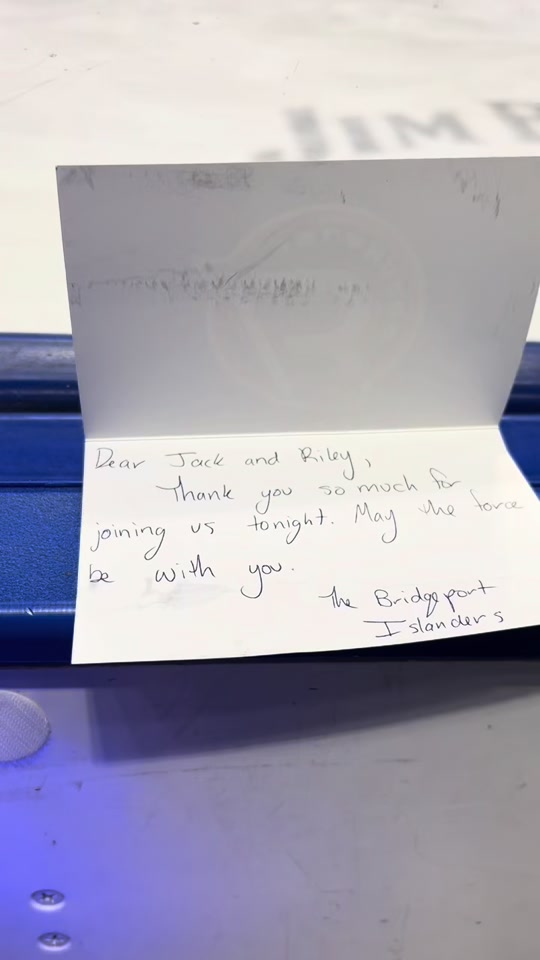 JIM B
Dear Jack and Riley,
Thank you so much for
joining us tonight. May the force
be with you.
The Bridgeport
Islanders